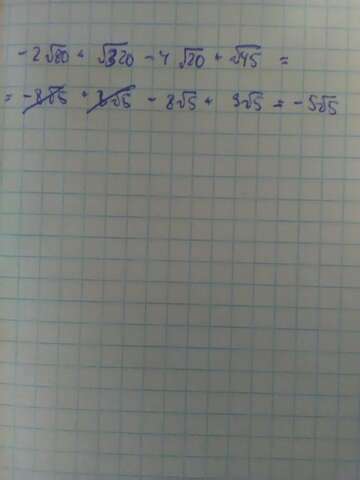 -2√80 + √320 - 4√20 + √45 =
= -8√5 + 8√5 - 8√5 + 3√5 = -5√5